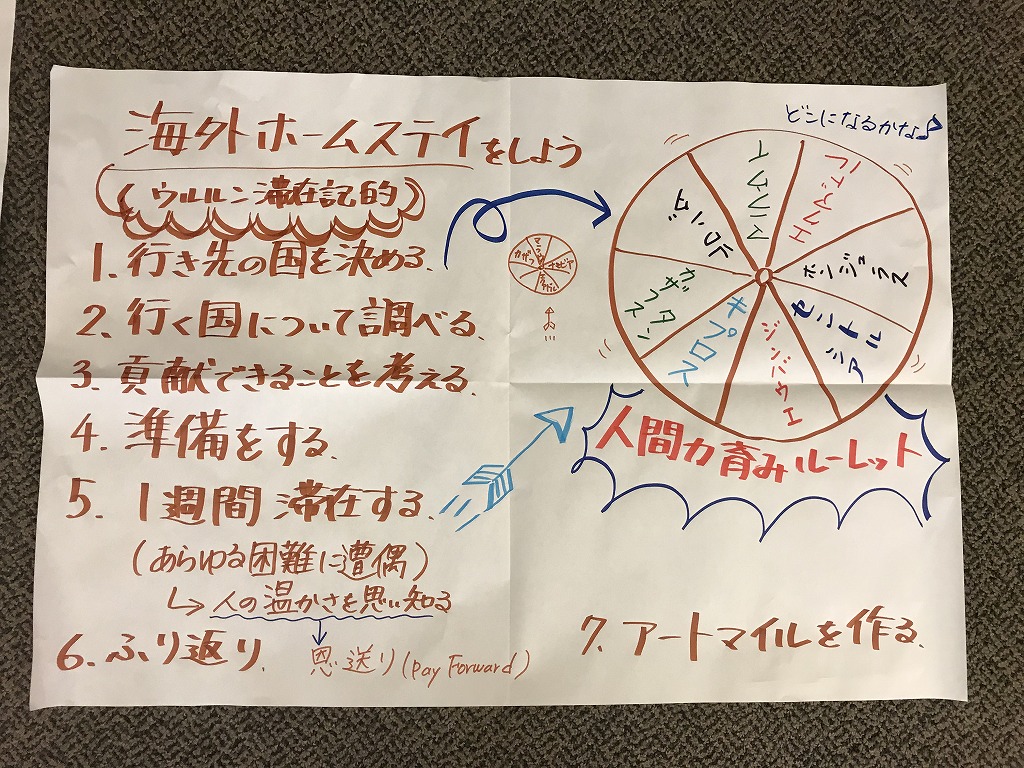 海外ホームステイをしよう
(ウルルン滞在記的)
1. 行き先の国を決める.
2. 行く国について調べる.
3. 貢献できることを考える.
4. 準備をする.
5. 1週間滞在する.
(あらゆる困難に遭遇)
↳人の温かさを思い知る
6. ふり返り.
恩送り(pay Forward)
どこになるかな♪
ホンジュラス
セントル
シア
ジンバウエ
キプロス
カザフ
スタン
人間力育みルーレット
7. アートマイルを作る.